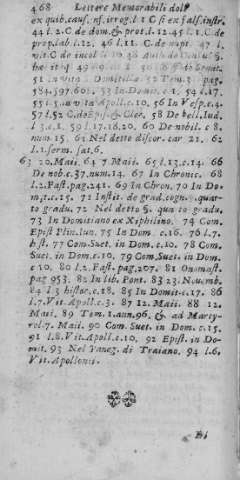 468 Lettere Memorabili dell'
ex quib. caus. nf. irrog. l. 1 C si ex fals. instr.
44 l. 2. C. de dom. & prot. l. 12. 45 l. 1. C. de
prop. lab. l. 12. 46 l. 11. C. de nupt. 47 l.
vit. C de incol
51 in vita Domit. 52 Tem. 3. pag.
584. 597. 601. 53 In Domit. c 1. 54 l. 17.
55 l. 5. in vita Apoll. c. 10. 56 In Vesp. c. 4.
57 l. 2. C de Episc. & Cler. 58 De bell. Iud.
l. 3. c. 1. 59 l. 17. 16. 20. 60 De nobil. c 8.
num. 15. 61 Nel detto discor. car 21. 62
l. 1. serm. sat. 6.
63 20. Maii. 64 7 Maii. 65 l. 13. c. 14. 66
De nob. c. 37. num. 14. 67 In Chronic. 68
l. 2. Fast. pag. 241. 69 In Chron. 70 In Do-
mit. c. 15. 71 Instit. de grad. cogn. §. quar-
to gradu. 72 Nel detto §. quarto gradu.
73 In Domitiano ex Xiphilino. 74 Com.
Epist Plin. Iun. 75 In Dom. c. 16. 76 l. 7.
hist. 77 Com. Suet. in Dom. c. 10. 78 Com.
Suet. in Dom. c. 10. 79 Com. Suet. in Dom.
c 10. 80 l. 2. Fast. pag. 207. 81 Onomast.
pag 953. 82 In lib. Pont. 83 23. Novemb.
84 l. 3 histor. c. 18. 85 In Domit. c. 17. 86
l. 7. Vit. Apoll. c. 3. 87 12. Maii. 88 12.
Maii. 89 Tem. 1. ann. 96. & ad Marty-
rol. 7. Maii. 90 Com. Suet. in Dom. c. 15.
91 l. 8. Vit. Apoll. c. 10. 92 Epist. in Do-
mit. 93 Nel Panez. di Traiano. 94 l. 6.
Vit. Apollonii.